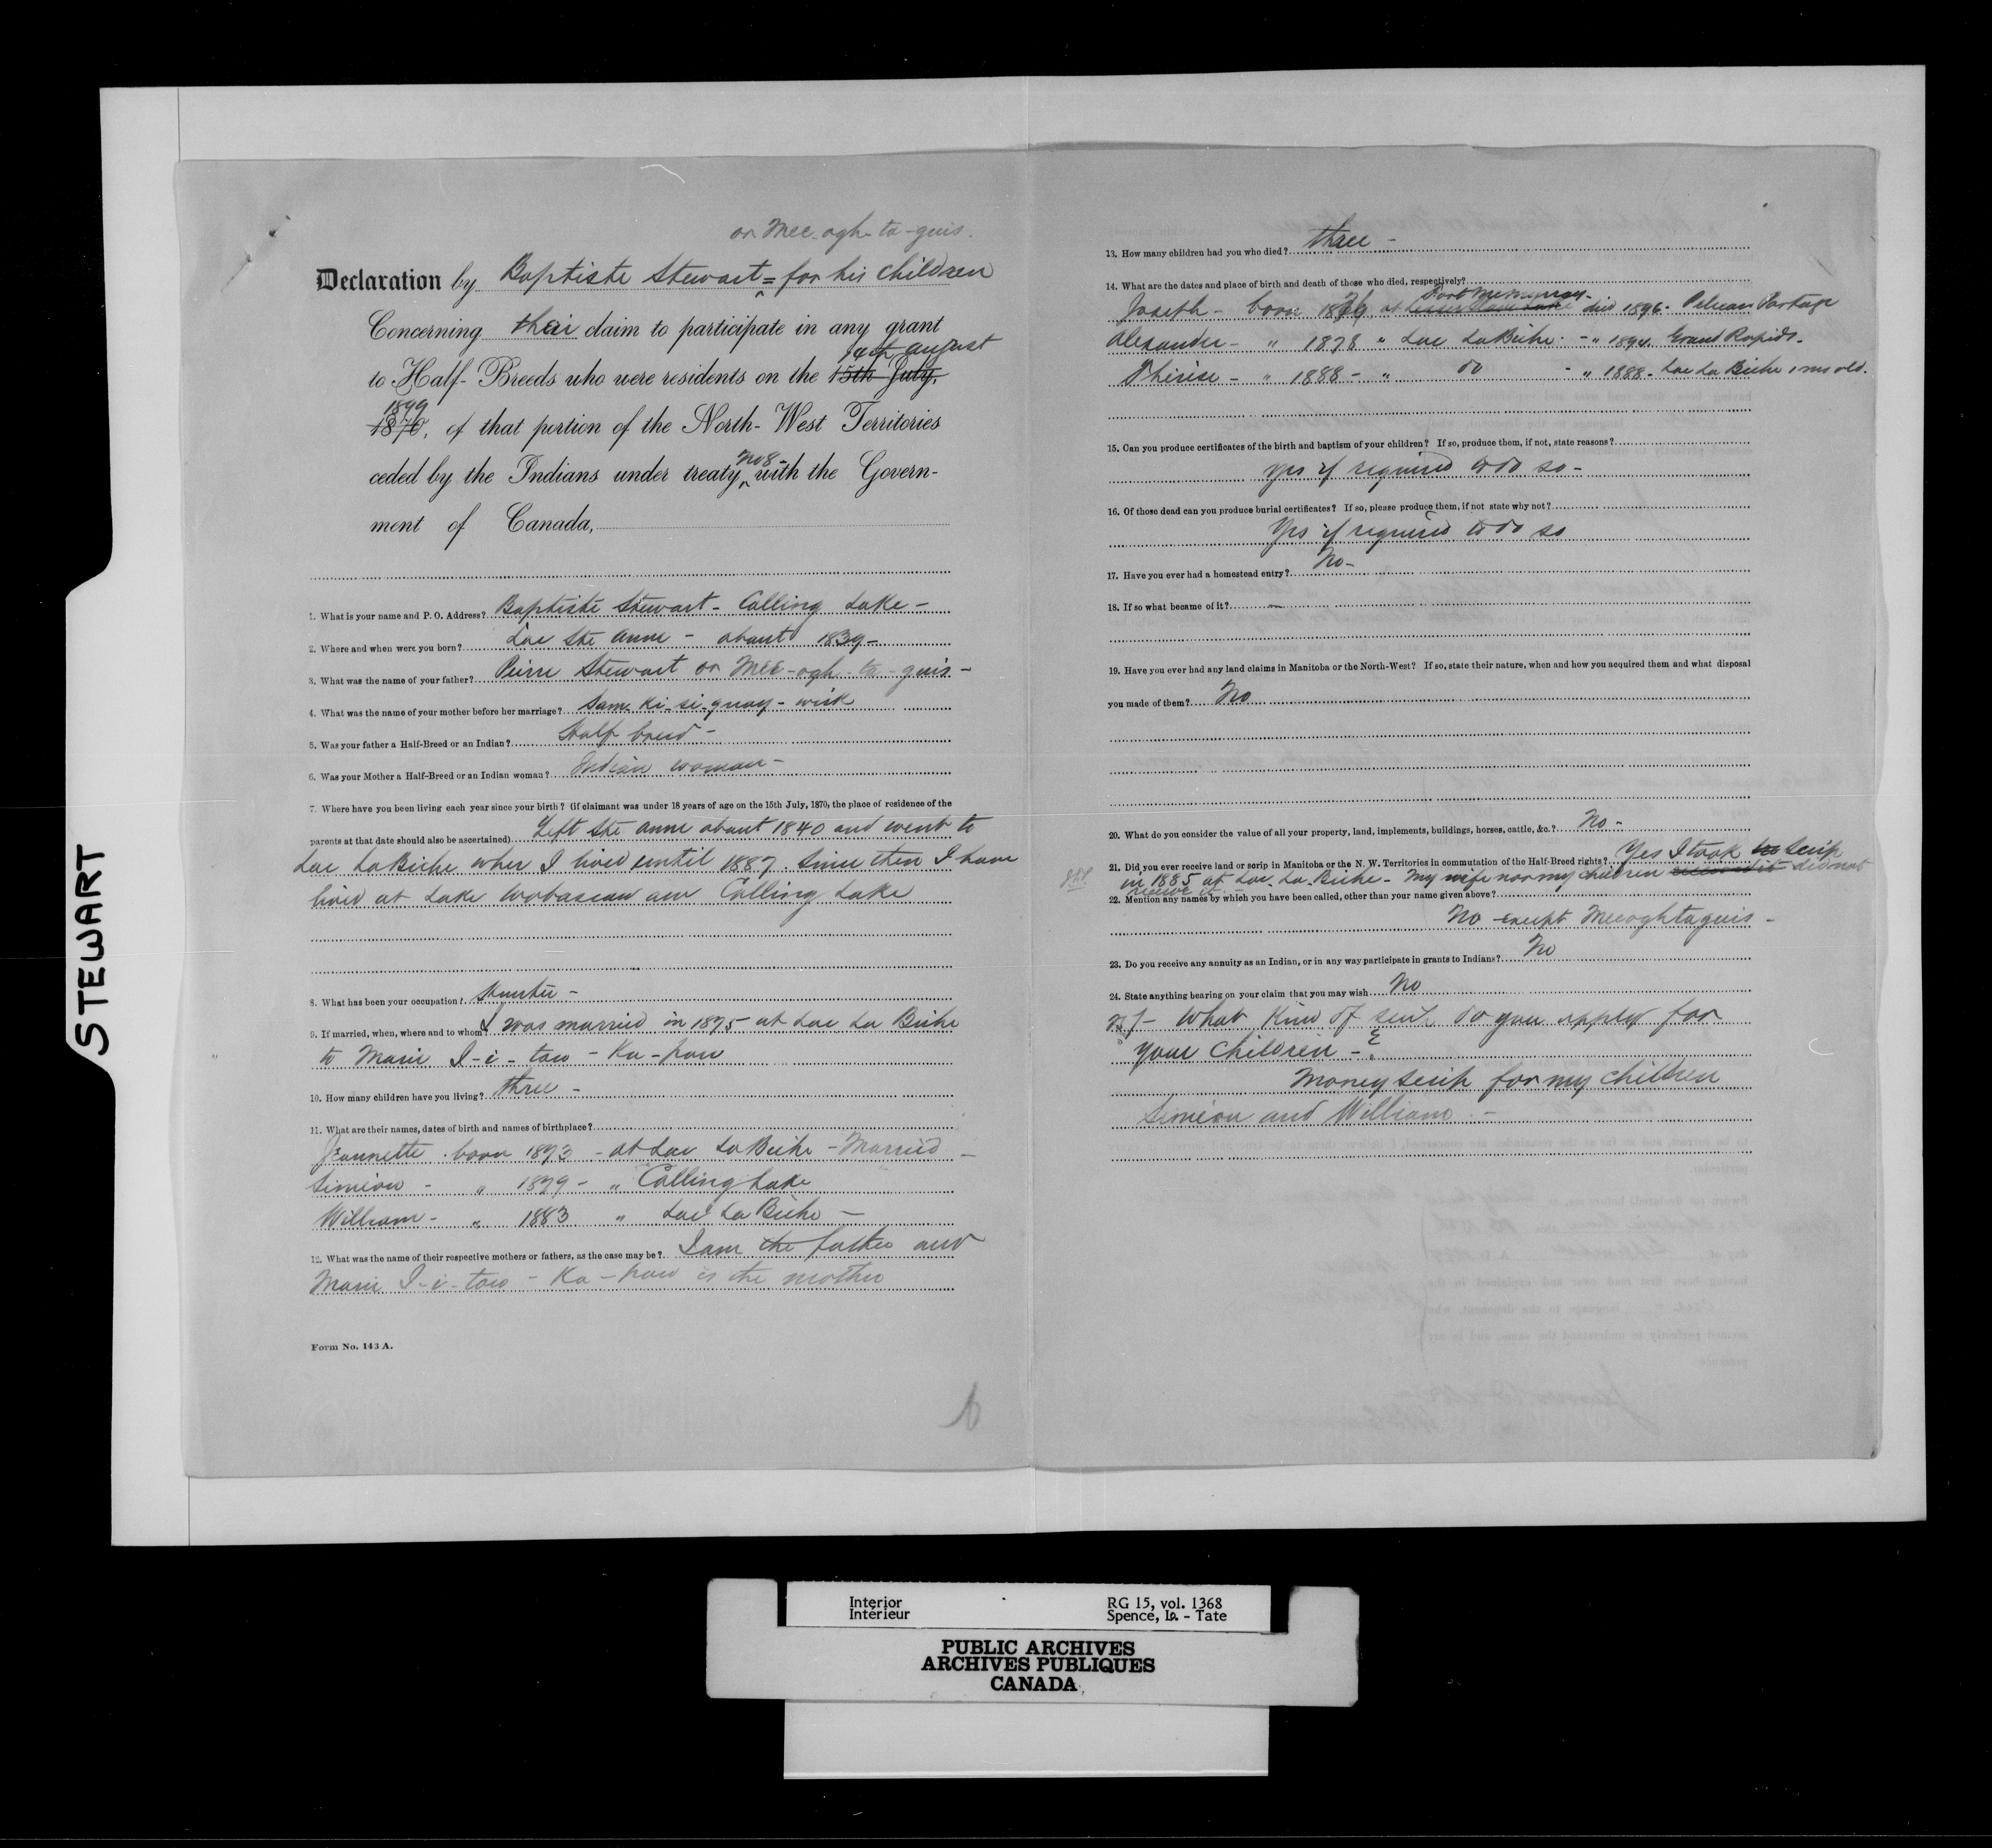 or Mee-ogh-ta-guis.
Declaration by Baptiste Stewart = for his children
Concerning their claim to participate in any grant
14th august
to Half-Breeds who were residents on the 15th July,
1899
1870, of that portion of the North-West Territories
No 8
ceded by the Indians under treaty with the Govern-
ment of Canada,
1. What is your name and P. O. Address? Baptiste Stewart - Calling Lake -
2. Where and when were you born? Lac Ste Anne - about 1839 -
3. What was the name of your father? Pierre Stewart or Mee-ogh-ta-guis -
4. What was the name of your mother before her marriage? Sam-ki-si-quay-wisk
5. Was your father a Half-Breed or an Indian? Half breed -
6. Was your Mother a Half-Breed or an Indian woman? Indian woman -
7. Where have you been living each year since your birth? (if claimant was under 18 years of age on the 15th July, 1870, the place of residence of the
parents at that date should also be ascertained) Left Ste Anne about 1840 and went to
Lac La Biche wher I lived until 1887. Since then I have
lived at Lake Wabascaw and Calling Lake
8. What has been your occupation? Hunter -
9. If married, when, where and to whom? I was married in 1875 at Lac La Biche
to Marie I-i-taw-Ka-pow
10. How many children have you living? three -
11. What are their names, dates of birth and names of birthplace?
Jeannette . born 1873 - at Lac La Biche - Married -
Simeon - " 1879 - " Calling Lake
William - " 1883 " Lac La Biche -
12. What was the name of their respective mothers or fathers, as the case may be? I am the father and
Marie I-i-taw-Ka-pow is the mother
Form No. 143 A.
13. How many children had you who died? three -
14. What are the dates and place of birth and death of those who died, respectively?
Fort McMurray -
Joseph - born 1876 at Lesser Slave Lake died 1896 - Pelican Portage
Alexander - " 1878 " Lac La Biche - " 1894 Grand Rapids -
Thérèse - " 1888 - " do - " 1888 - Lac La Biche 1 ms old.
15. Can you produce certificates of the birth and baptism of your children? If so, produce them, if not, state reasons?
Yes if required to do so -
16. Of those dead can you produce burial certificates? If so, please produce them, if not state why not?
Yes if required to do so
17. Have you ever had a homestead entry? No -
18. If so what became of it? -
19. Have you ever had any land claims in Manitoba or the North-West? If so, state their nature, when and how you acquired them and what disposal
you made of them? No
20. What do you consider the value of all your property, land, implements, buildings, horses, cattle, &c.? No -
21. Did you ever receive land or scrip in Manitoba or the N. W. Territories in commutation of the Half-Breed rights? Yes I took no Scrip
in 1885 at Lac La Biche - My wife nor my children received it did not
receive it -
22. Mention any names by which you have been called, other than your name given above?
No except Meeoghtaguis -
23. Do you receive any annuity as an Indian, or in any way participate in grants to Indians? No
24. State anything bearing on your claim that you may wish No
25 - What Kind of scrip do you apply for
your children - ?
Money scrip for my children
Simeon and William -
STEWART
Interior
Intérieur
RG 15, vol. 1368
Spence, La. - Tate
PUBLIC ARCHIVES
ARCHIVES PUBLIQUES
CANADA